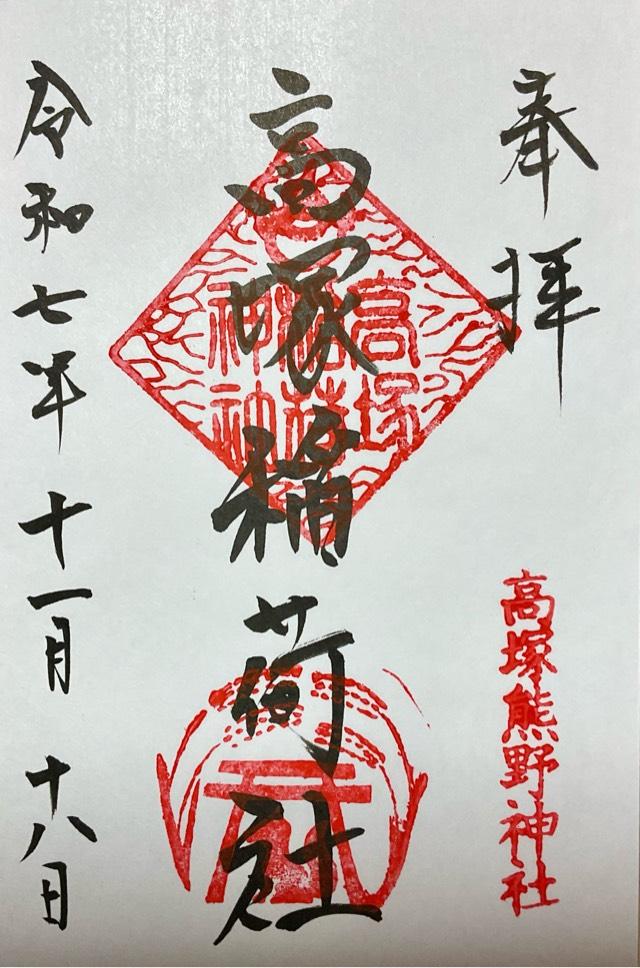 奉拝
高塚熊野神社
高塚稲荷社
高塚
神神
令和七年十一月十八日